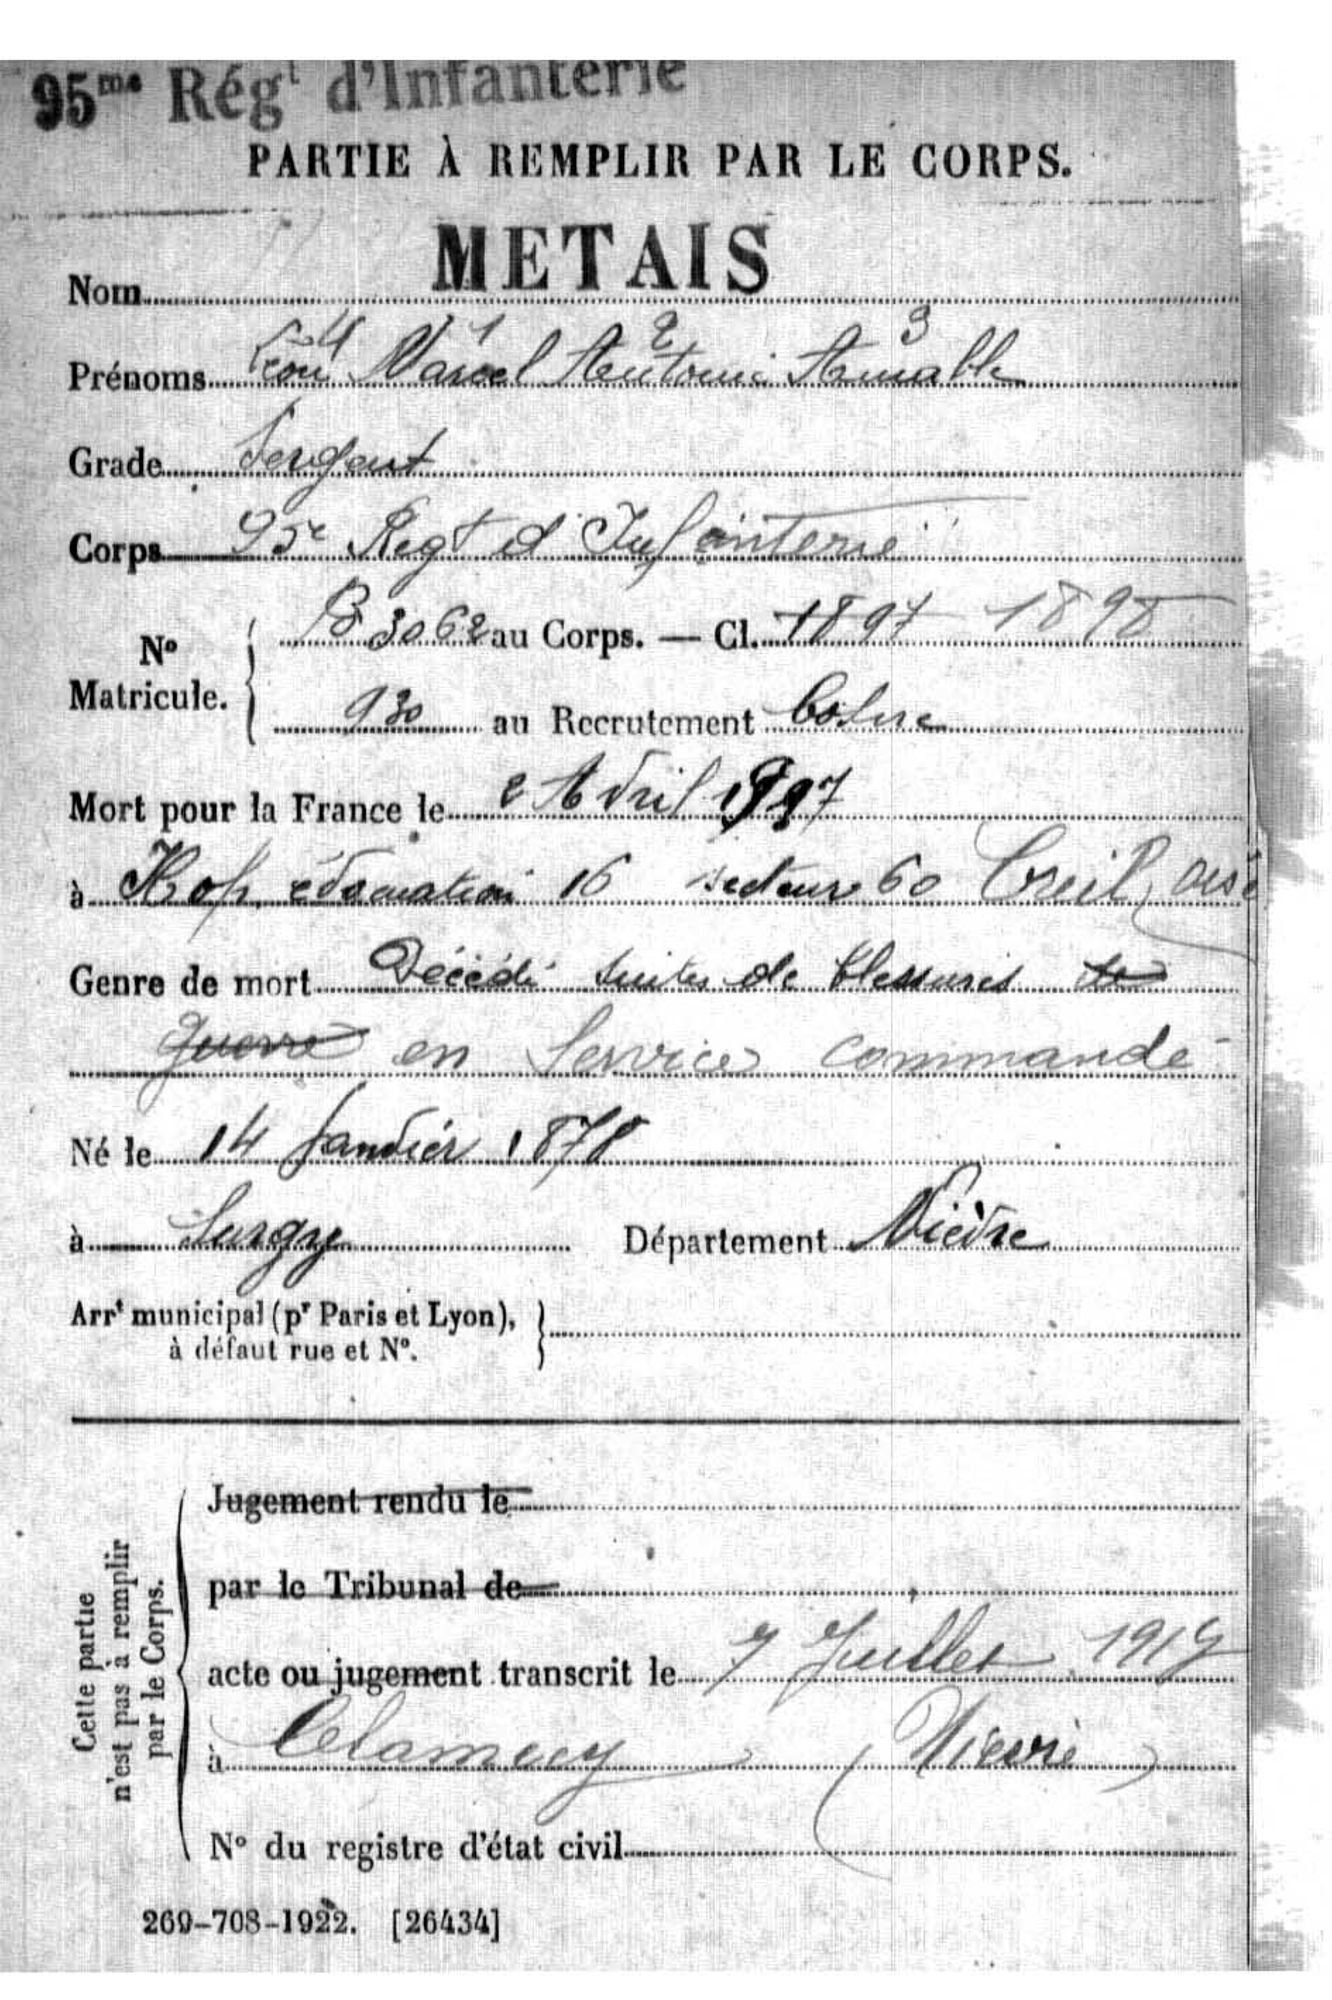 95me Régt d'Infanterie
PARTIE À REMPLIR PAR LE CORPS.
Nom METAIS
4 1 2 3
Prénoms Léon Marcel Antonin Aimable
Grade Sergent
Corps 95e Regt d'Infanterie
No Matricule. { B 3062 au Corps. — Cl. 1897 1898
930 au Recrutement Cosne
Mort pour la France le 2 Avril 1917
à Hop. évacuation 16 secteur 60 Creil, Oise
Genre de mort Décédé suites de blessures de
guerre en Service commandé
Né le 14 Janvier 1878
à Surgy Département Nièvre
Arrt municipal (pr Paris et Lyon), }
à défaut rue et No.
Cette partie
n'est pas à remplir
par le Corps.
Jugement rendu le
par le Tribunal de
acte ou jugement transcrit le 7 Juillet 1917
à Clamecy (Nièvre)
No du registre d'état civil
269-708-1922. [26434]